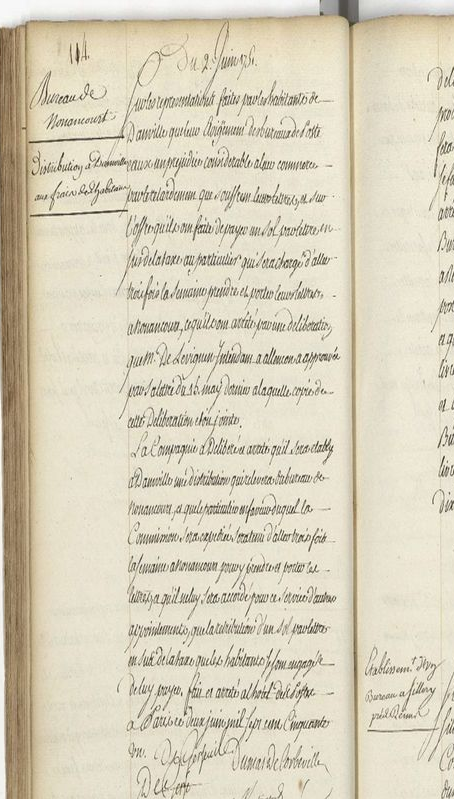 114.
Du 2. Juin 1751.
Bureau de
Nonancourt
Distribution a Damville
aux frais des habitans
Sur les representations faites par les habitants de
Damville que leur eloignement des bureaux de Poste
cause un prejudice considerable a leur commerce
par le retardement que souffrent leurs lettres, et sur
l'offre qu'ils ont faite de payer un sol par lettre en
sus de la taxe au particulier qui sera chargé d'aller
trois fois la semaine prendre et porter leurs lettres
a Nonancourt, ce qu'ils ont arrêté par une deliberation
que Mr. De Levignen Intendant a allencon a approuvée
par sa lettre du 16. may dernier a laquelle copie de
cette Deliberation est jointe.
La Compagnie a Deliberé et arreté qu'il sera etably
a Damville une distribution qui relevera du bureau de
Nonancourt, et que le particulier en faveur duquel la
Commission sera expediée sera tenu d'aller trois fois
la semaine a Nonancourt pour y prendre et porter les
lettres, et qu'il ne luy sera accordé pour ce service d'autres
appointements, que la retribution d'un sol par lettre
en sus de la taxe que les habitants se sont engagés
de luy payer, fait et arreté a l'hotel des Postes
a Paris ce deux juin mil sept cent cinquante
un.
Dumas de Corbeville
Etablissemt. d'un
Bureau a Sillery
près de Reims